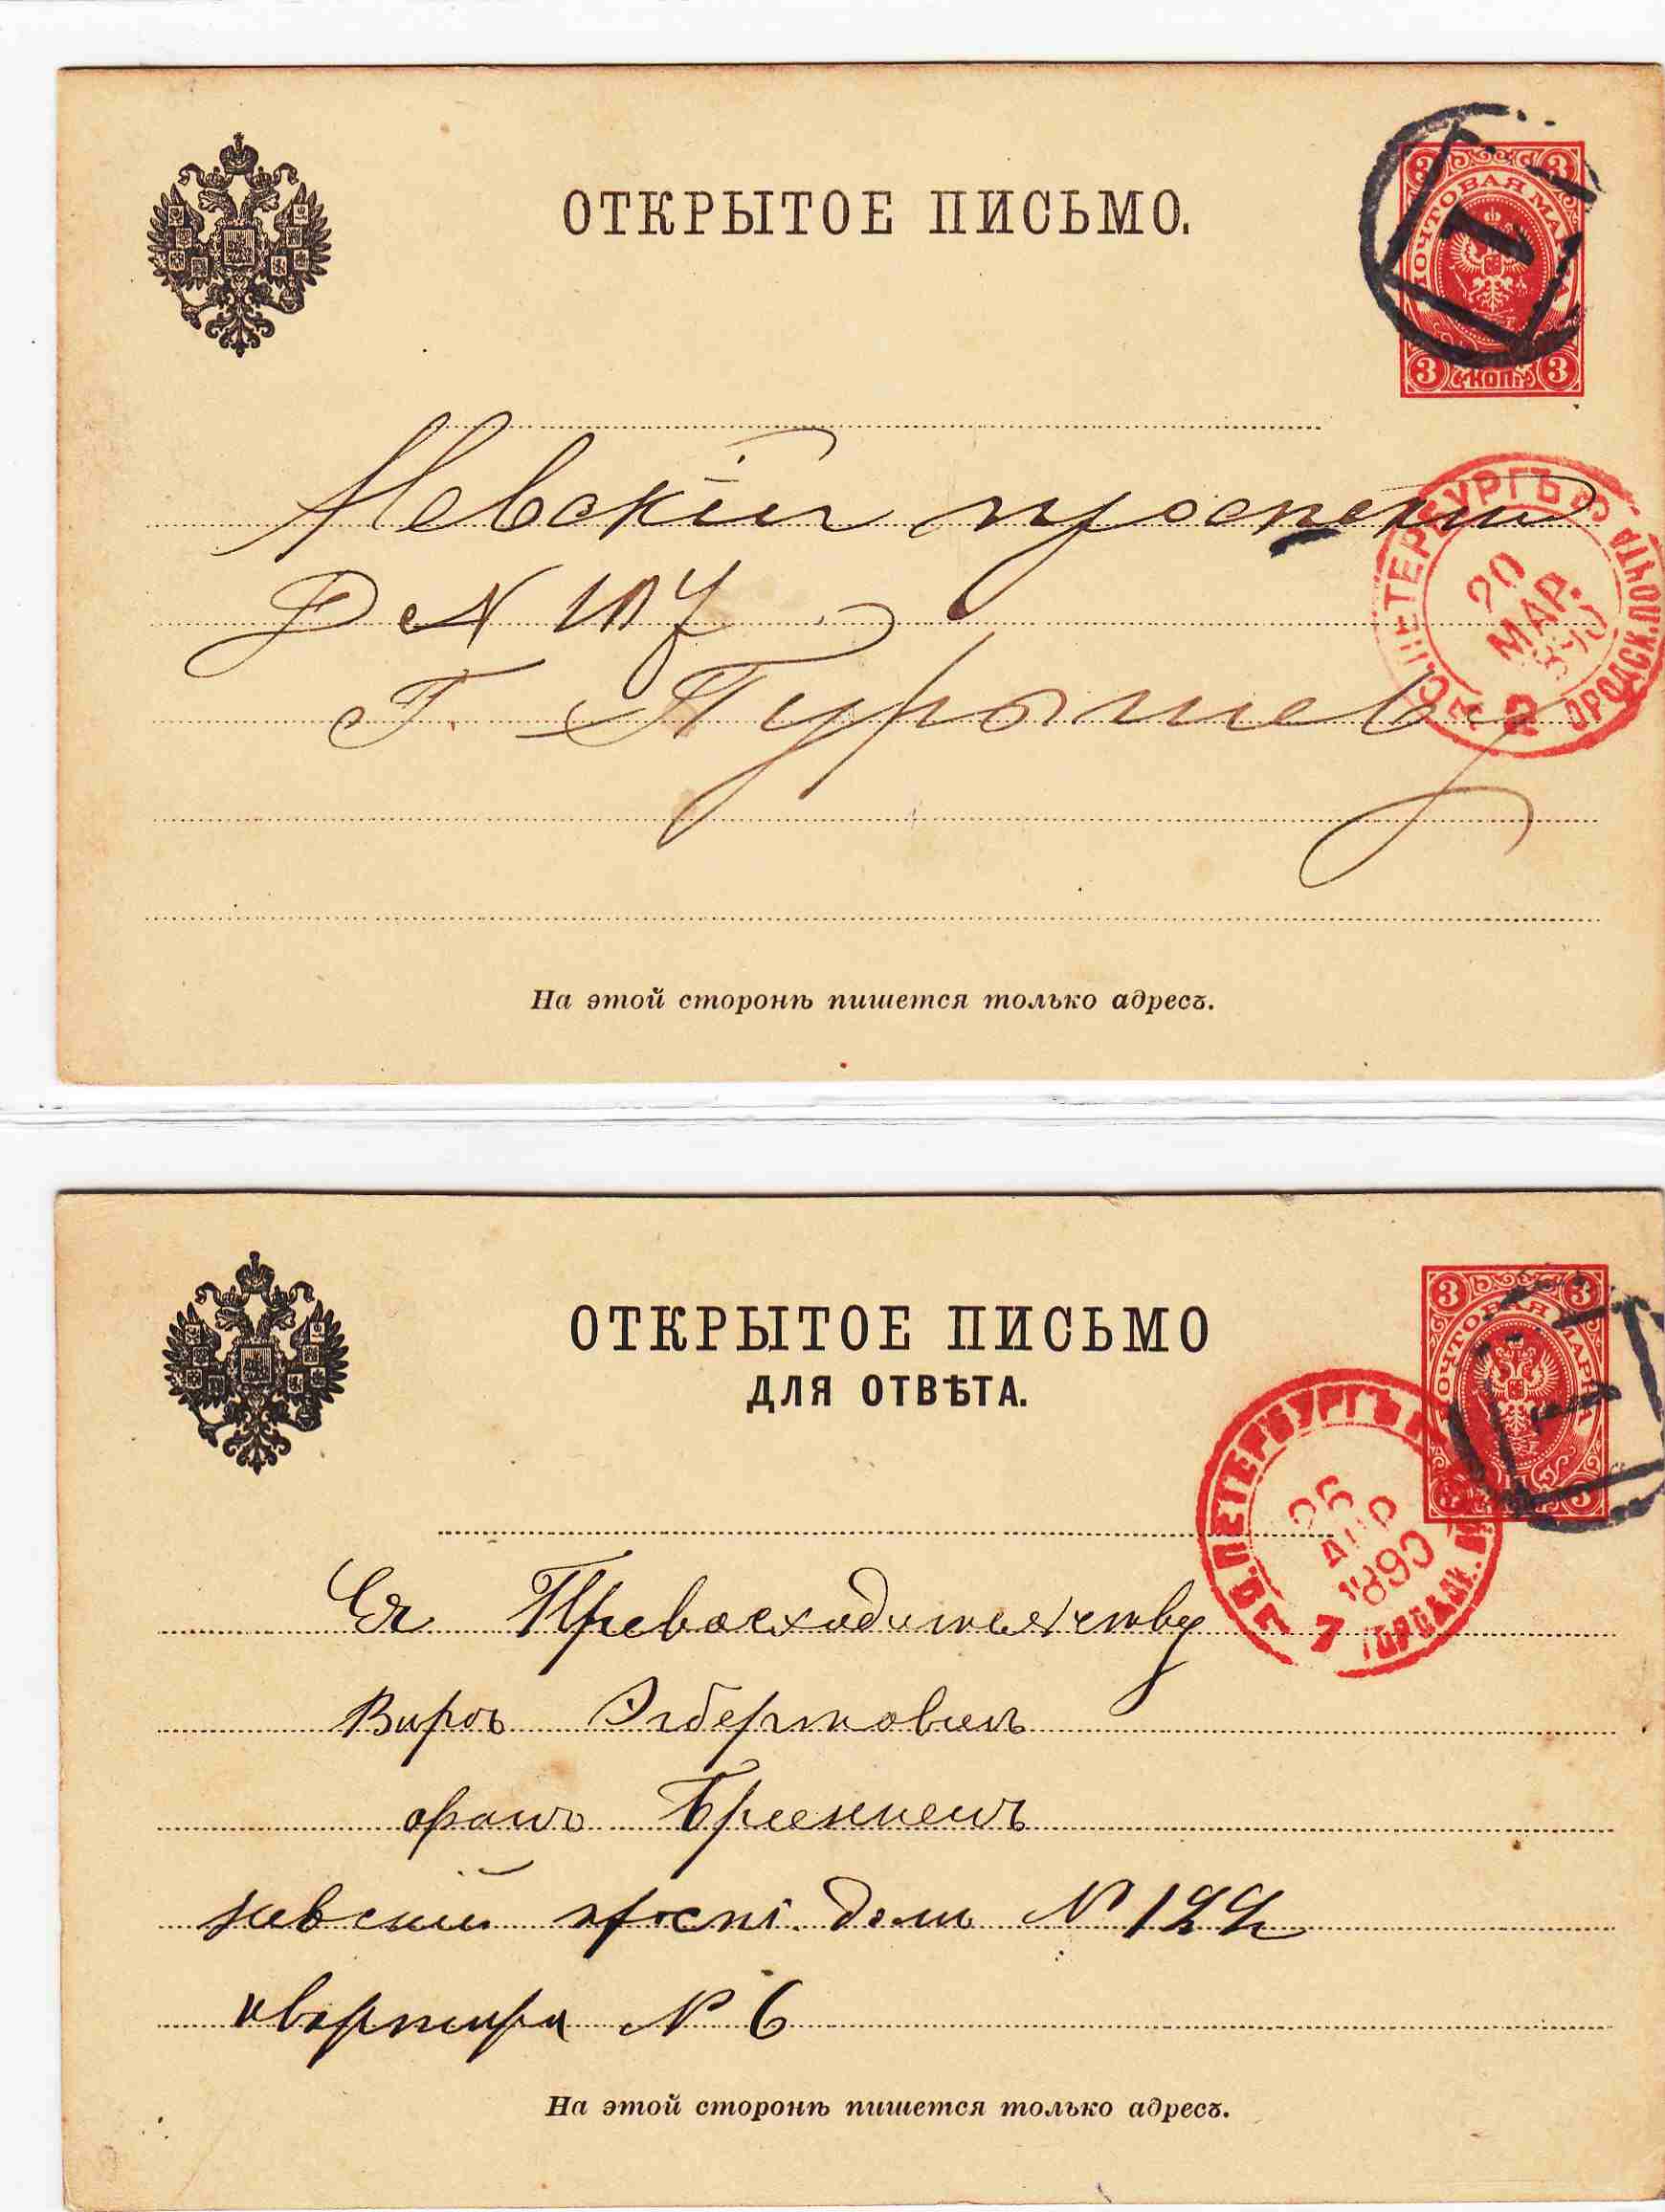 ОТКРЫТОЕ ПИСЬМО.
3 3
ПОЧТОВАЯ МАРКА
1
3 КОП. 3
Невскій проспектъ
Д № 107
Г. Пурышеву
С. ПЕТЕРБУРГЪ
ГОРОДСК. ПОЧТА
20
МАР.
2
На этой сторонѣ пишется только адресъ.
ОТКРЫТОЕ ПИСЬМО
ДЛЯ ОТВѢТА.
3 3
ПОЧТОВАЯ МАРКА
3
С. ПЕТЕРБУРГЪ
ГОРОДСК.
26
АПР
1890
7
Ея Превосходительству
фонъ
Невскій просп. домъ № 122
квартира № 6
На этой сторонѣ пишется только адресъ.